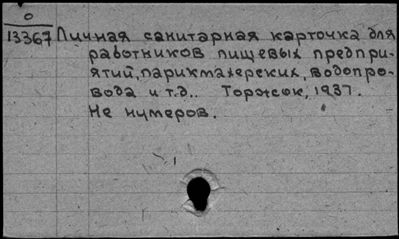 0
13367 Личная санитарная карточка для
работников пищевых предпри-
ятий, парикмахерских, водопро-
вода и т.д.. Торжок, 1937.
Не нумеров.